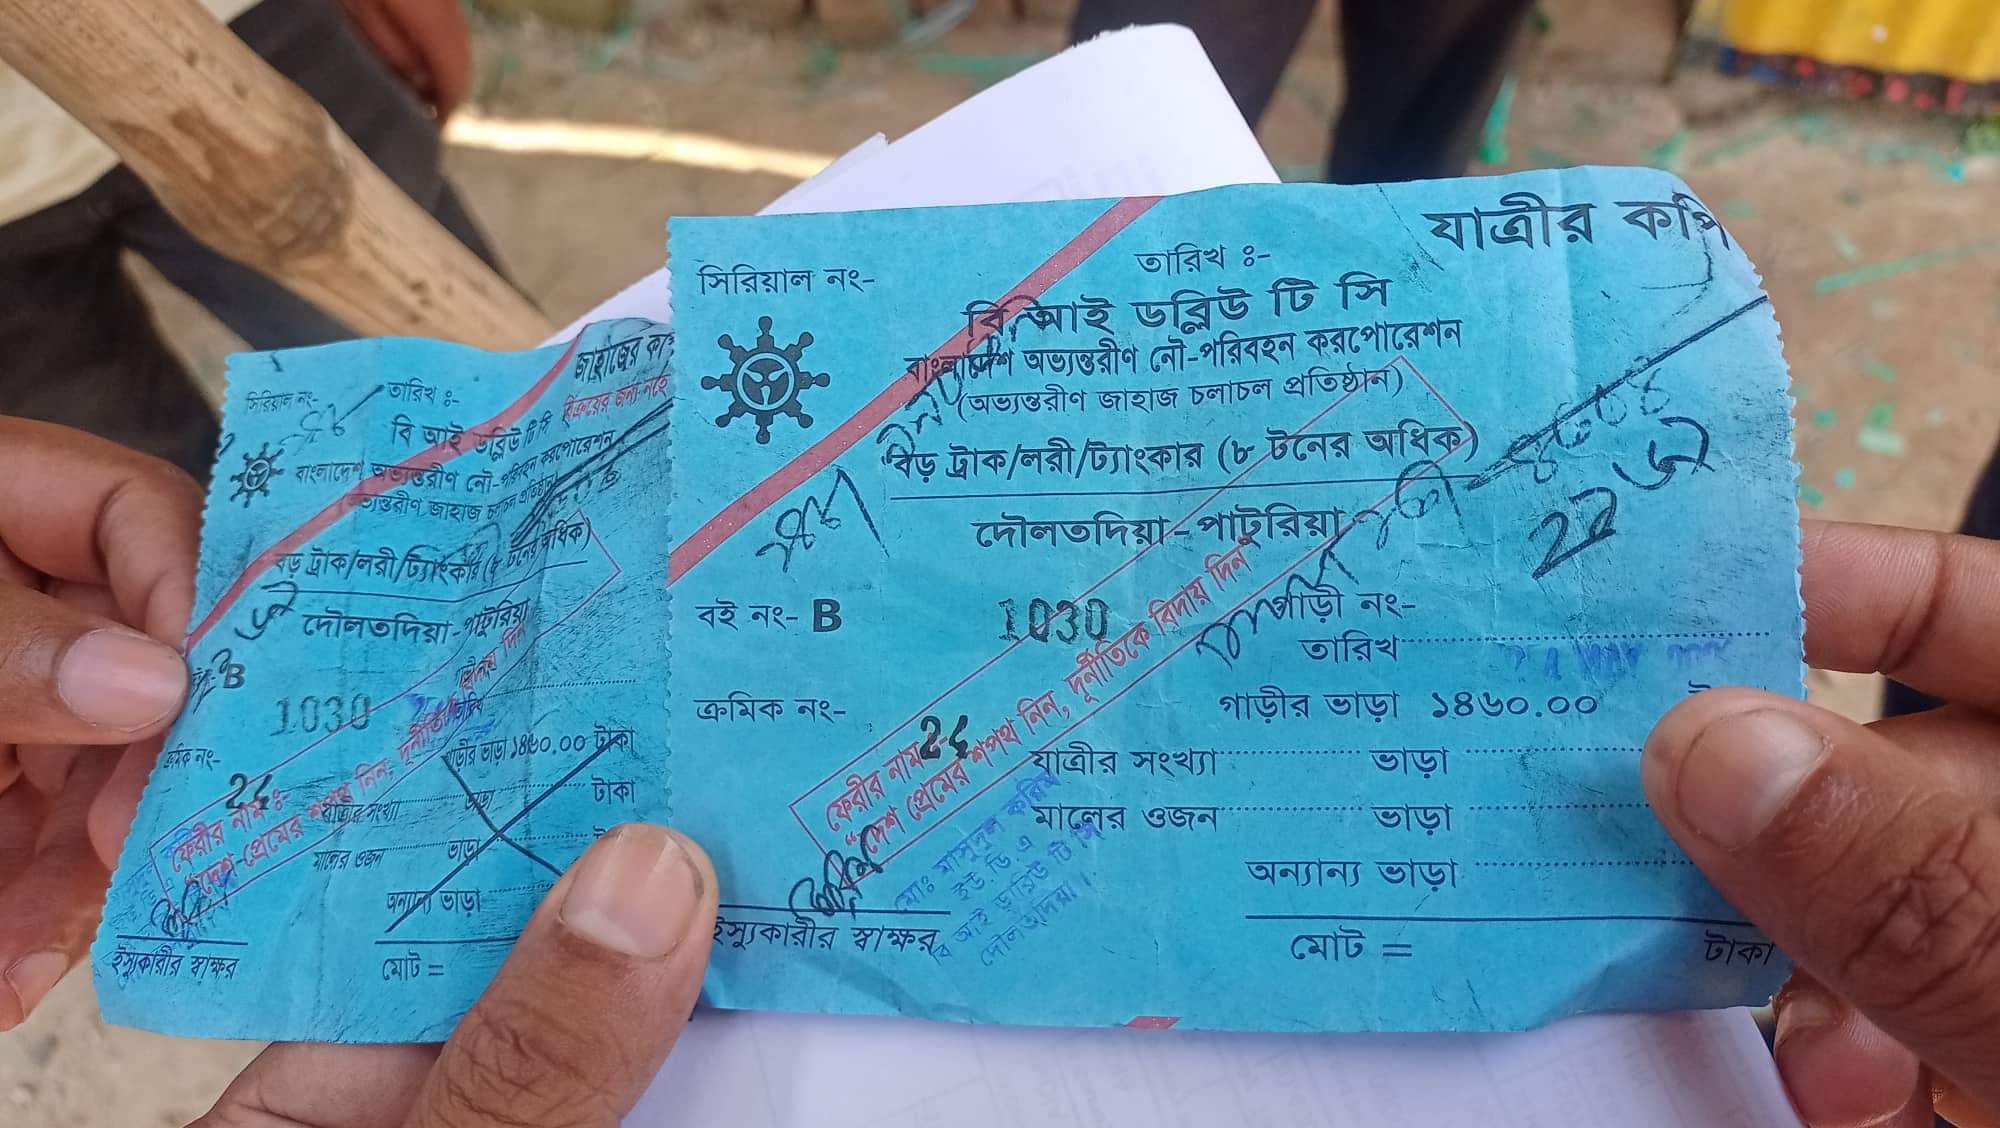 জাহাজের কপি
সিরিয়াল নং-
তারিখ ঃ-
বিক্রয়ের জন্য নহে
বি আই ডব্লিউ টি সি
বাংলাদেশ অভ্যন্তরীণ নৌ-পরিবহন করপোরেশন
(অভ্যন্তরীণ জাহাজ চলাচল প্রতিষ্ঠান)
বড় ট্রাক/লরী/ট্যাংকার (৮ টনের অধিক)
দৌলতদিয়া-পাটুরিয়া
B
1030
ক্রমিক নং-
24
গাড়ীর ভাড়া ১৪৬০.০০ টাকা
যাত্রীর সংখ্যা ভাড়া টাকা
মালের ওজন ভাড়া
অন্যান্য ভাড়া
ফেরীর নাম ঃ-
"দেশ প্রেমের শপথ নিন, দূর্নীতিকে বিদায় দিন"
ইস্যুকারীর স্বাক্ষর
মোট =
যাত্রীর কপি
সিরিয়াল নং-
তারিখ ঃ-
বি আই ডব্লিউ টি সি
বাংলাদেশ অভ্যন্তরীণ নৌ-পরিবহন করপোরেশন
(অভ্যন্তরীণ জাহাজ চলাচল প্রতিষ্ঠান)
বড় ট্রাক/লরী/ট্যাংকার (৮ টনের অধিক)
দৌলতদিয়া-পাটুরিয়া
বই নং- B
1030
গাড়ী নং-
তারিখ
ক্রমিক নং-
24
গাড়ীর ভাড়া ১৪৬০.০০
যাত্রীর সংখ্যা ভাড়া
মালের ওজন ভাড়া
অন্যান্য ভাড়া
ফেরীর নাম
"দেশ প্রেমের শপথ নিন, দূর্নীতিকে বিদায় দিন"
মোঃ মাসুদুল করিম
ইউ ডি এ
বি আই ডব্লিউ টি সি
দৌলতদিয়া।
ইস্যুকারীর স্বাক্ষর
মোট = টাকা